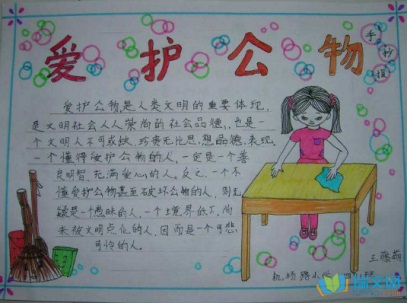 爱护公物
手抄报
爱护公物是人类文明的重要体现,
是文明社会人人崇尚的社会品德,也是一
个文明人不可或缺、珍贵无比思想品德、表现。
一个懂得爱护公物的人,一定是一个善
良明智、充满爱心的人。反之,一个不
懂爱护公物甚至破坏公物的人,则无
疑是一个愚昧的人,一个境界低下、尚
未被文明充化的人,因而是一个可悲
可怜的人。
机场路小学